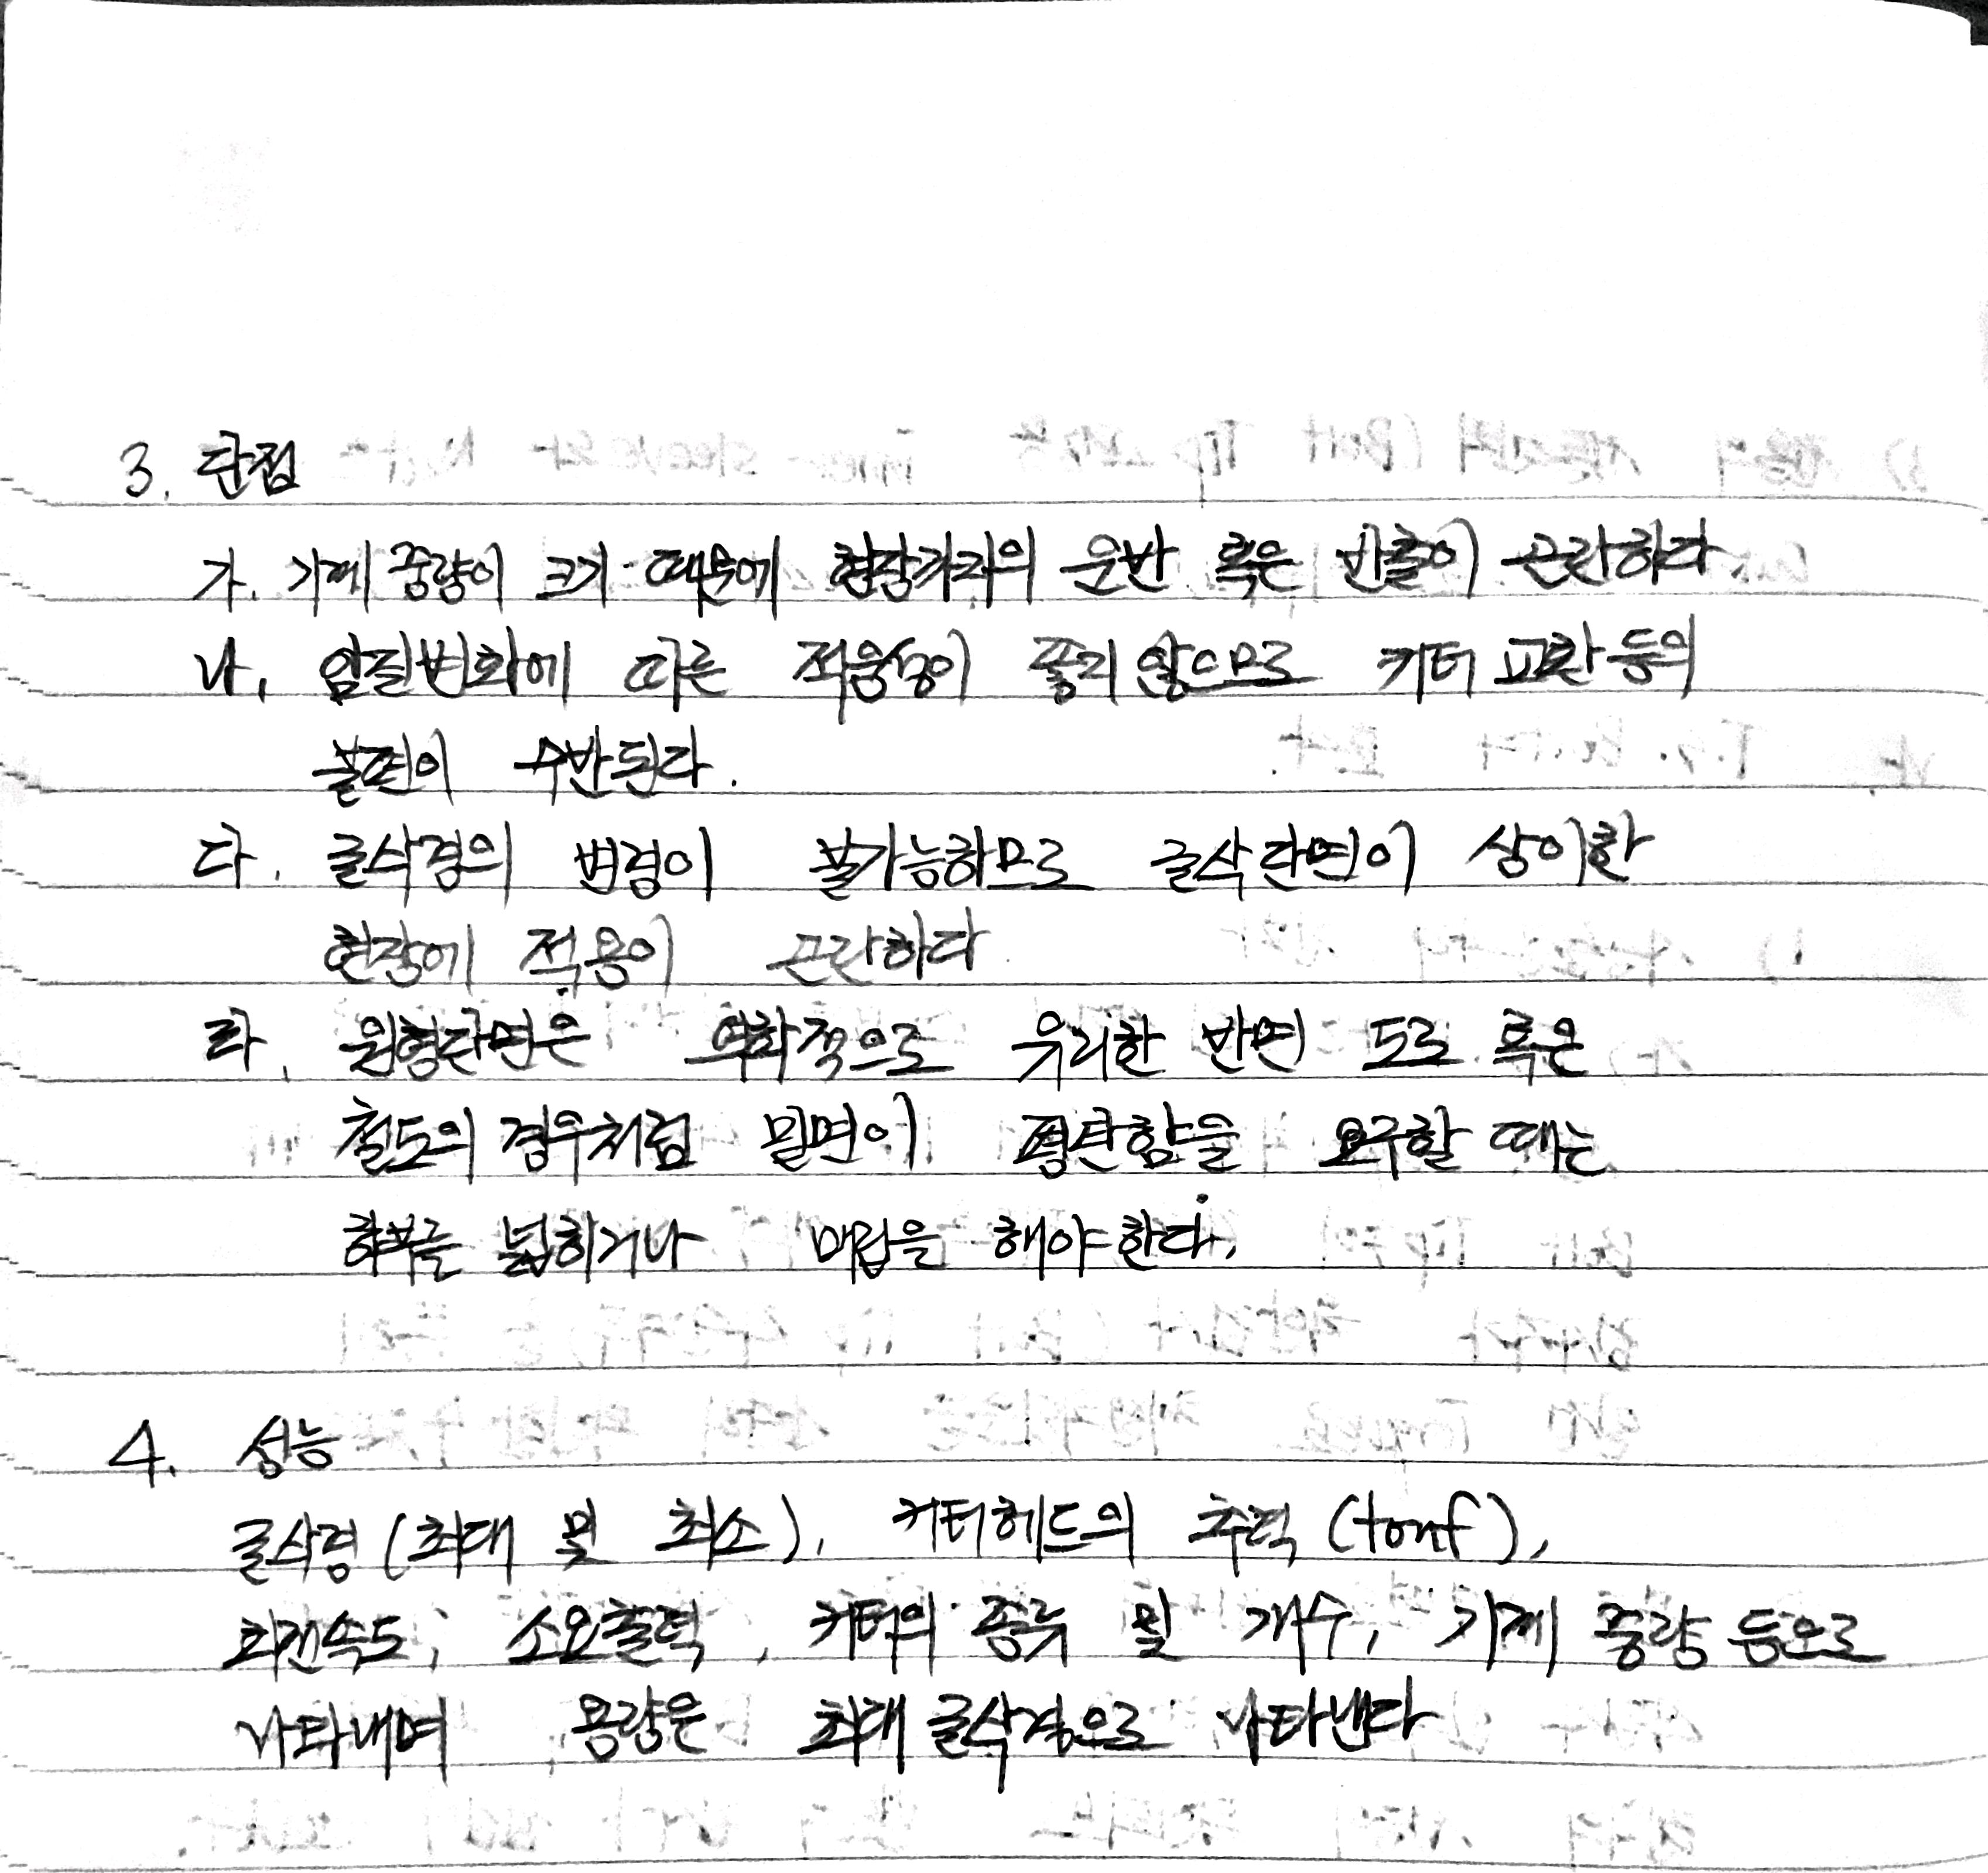 3. 단점
가. 기계 중량이 크기 때문에 현장까지의 운반 혹은 반출이 곤란하다.
나. 암질변화에 따른 적응성이 좋지 않으므로 커터 교환 등의
불편이 수반된다.
다. 굴삭경의 변경이 불가능하므로 굴삭단면이 상이한
현장에 적용이 곤란하다
라. 원형단면은 역학적으로 유리한 반면 도로 혹은
철도의 경우처럼 밑면이 평탄함을 요구할 때는
하부를 넓히거나 매립을 해야한다.
4. 성능
굴삭경 (최대 및 최소), 커터헤드의 추력 (tonf),
회전속도, 소요출력, 커터의 종류 및 개수, 기계 중량 등으로
나타내며 용량은 최대 굴삭경으로 나타낸다